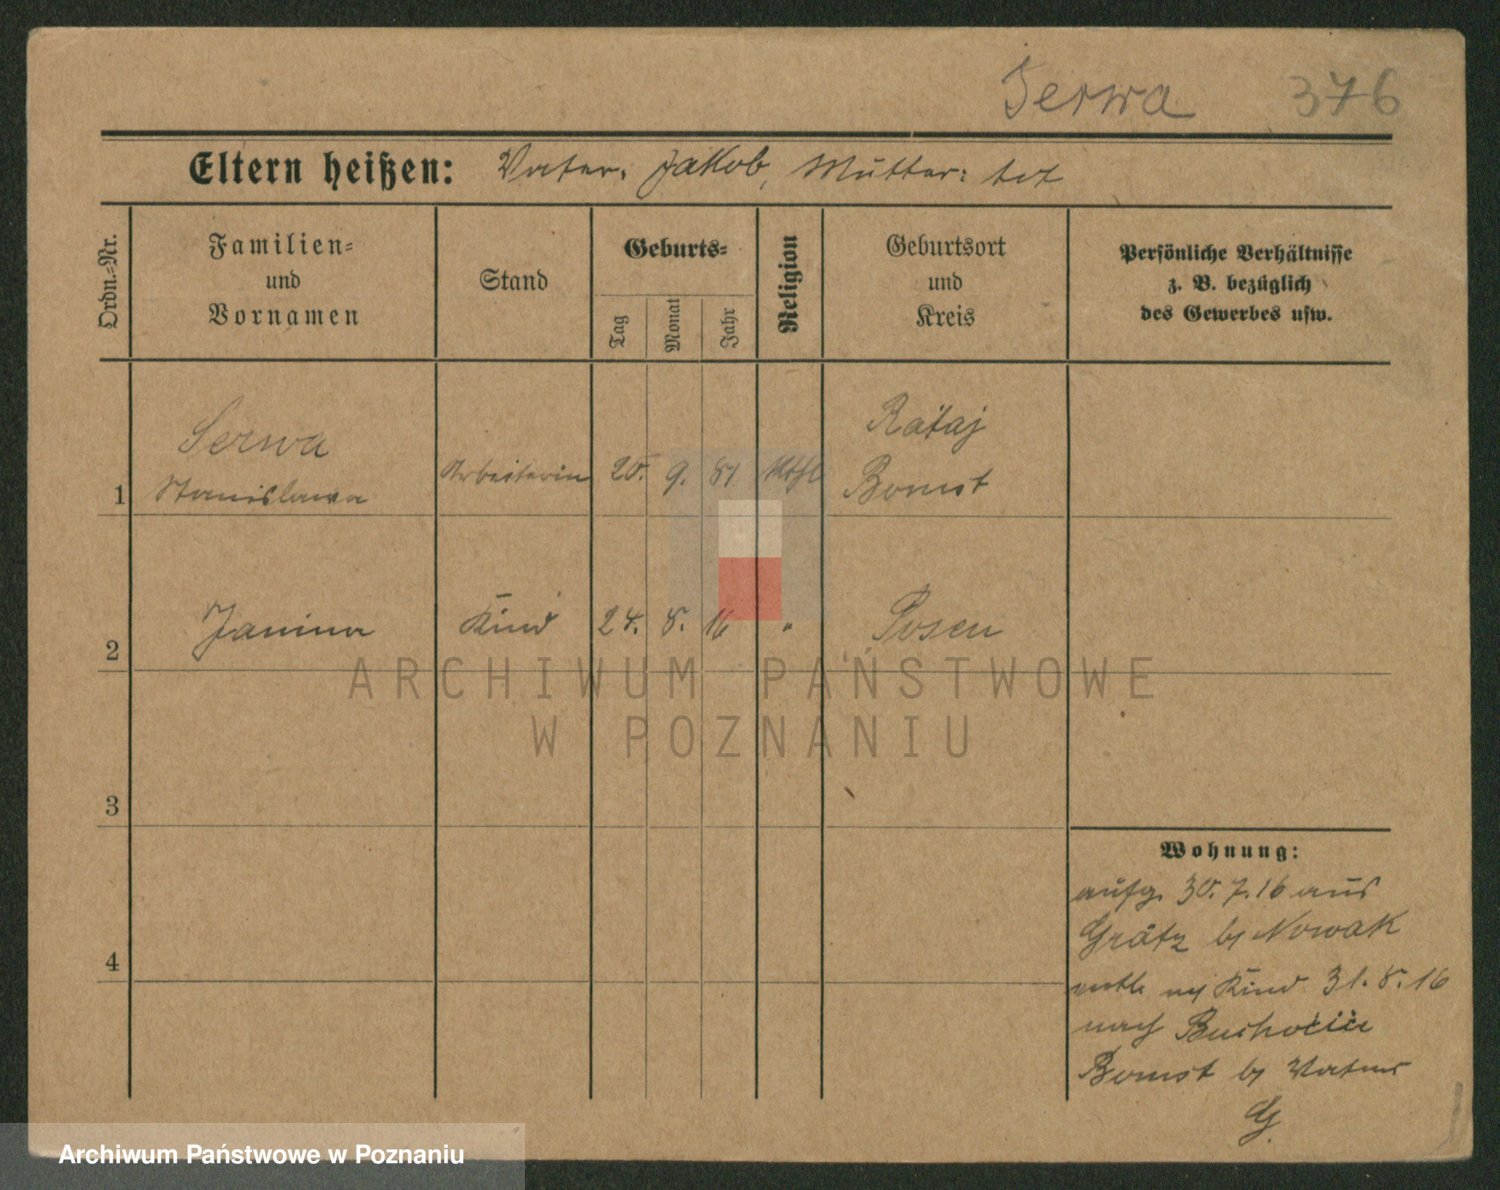 Serwa 376
Eltern heißen: Vater: Jakob, Mutter: tot
Ordn.-Nr.
Familien-
und
Vornamen
Stand
Geburts-
Tag
Monat
Jahr
Religion
Geburtsort
und
Kreis
Persönliche Verhältnisse
z. B. bezüglich
des Gewerbes usw.
Serwa Rataj
1 Stanislawa Arbeiterin 20. 9. 81 Bomst
2 Janina Kind 24. 8. 16 " Posen
3
Wohnung:
aufg. 30. 7. 16 aus
Grätz bj Nowak
4
entl. mj Kind 31. 8. 16
nach
Bomst bj Vater
G.
ARCHIWUM PAŃSTWOWE
W POZNANIU
Archiwum Państwowe w Poznaniu